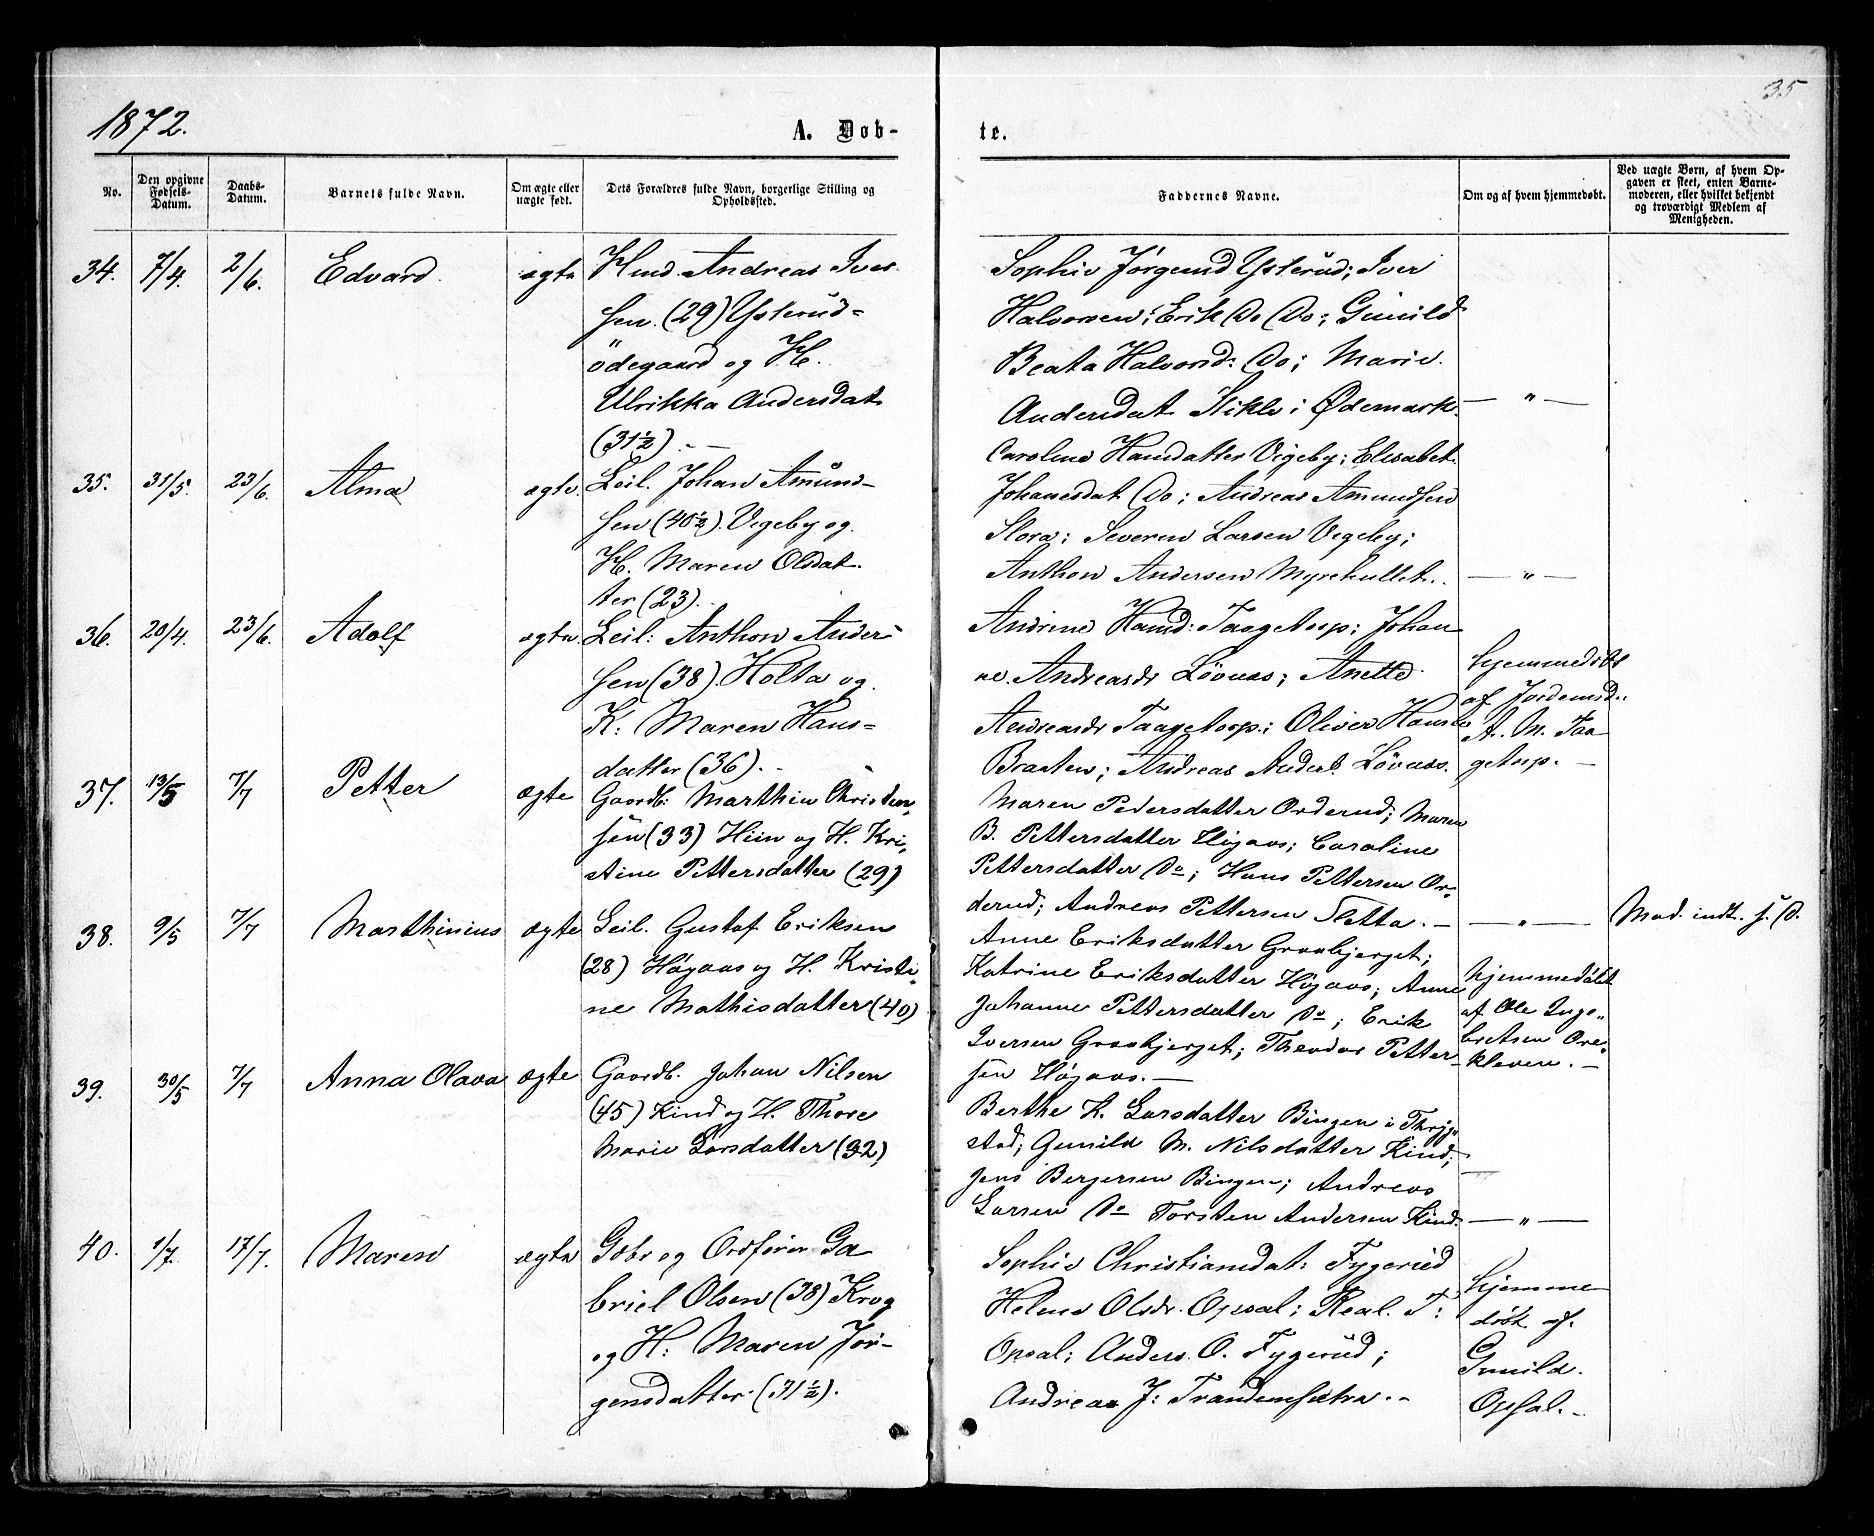 35
1872.
A. Døb-
te.
No.
Den opgivne Fødsels-Datum.
Daabs-Datum.
Barnets fulde Navn.
Om ægte eller uægte født.
Dets Forældres fulde Navn, borgerlige Stilling og Opholdssted.
Faddernes Navne.
Om og af hvem hjemmedøbt.
Ved uægte Børn, af hvem Opgaven er skeet, enten Barnemoderen, eller hvilket bekjendt og troværdigt Medlem af Menigheden.
34. 7/4. 2/6. Edvard. ægte
Andreas Iver
sen. (29) Ysterud=
ödegaard og H.
Ulrikka Andersdat
(31½). —
Sophie Jørgend Ysterud; Iver
Halvorsen; Erik Do Do; Gunild
Beata Halvorsd: Do; Marie
Andersdat Stikle i Ødemark.
— " —
35. 31/5. 23/6. Alma ægte.
Leil. Johan Amund-
sen (40½). Vegeby og
H. Maren Olsdat
ter (23).
Caroline Hansdatter Vegeby; Elisabet
Johanesdat Do; Andreas Amundsen
Slora; Severin Larsen Vegeby;
Anthon Andersen Myrehullet.
— " —
36. 20/4. 23/6. Adolf ægte.
Leil: Anthon Ander-
sen (38). Holta og
K: Maren Hans-
datter (36).
Andrine Hansd: Taagetorp; Johan
ne. Andreasdr Løvaas; Anette
Andreasdr Taagetorp; Oliver Hansen
Braaten; Andreas Anders. Løvaas.
hjemmedøbt
af Jordemd.
A. M. Taa
getorp. —
37. 13/5 7/7 Petter ægte
Gaardb: Marthin Christen-
sen (33) Hiin og H. Kri-
stine Pettersdatter (29)
Maren Pedersdatter Orderud; Maren
B. Pettersdatter Høgaas; Caroline
Pettersdatter Do; Hans Pettersen Or-
derud; Andreas Pettersen Sletta. —
— " —
Mod. indt. s. D.
38. 9/5 7/7 Marthinius ægte
Leil. Gustaf Eriksen
(28) Høgaas og H. Kristi-
ne Mathisdatter (40)
Anne Eriksdatter Graabjerget;
Katrine Eriksdatter Høgaas; Anne
Johanne Pettersdatter Do; Erik
Iversen Graabjerget; Theodor Petter-
sen Høgaas. —
hjemmedøbt
af Ole Inge-
bretsen Ore-
kleven. —
39. 30/5 7/7 Anna Olava ægte
Gaardb. Johan Nilsen
(45) Kind og H. Thore
Marie Larsdatter (32)
Berthe K. Larsdatter Bingen i Thryg-
stad; Gunild M. Nilsdatter Kind;
Jens Bergersen Bingen; Andreas
Larsen Do Torsten Andersen Kind.
— " —
40. 1/7. 17/7. Maren ægte
Gdbr og Ordfører Ga
briel Olsen (38) Krog
og H: Maren Jør-
gensdatter (31½).
Sophie Christiansdat: Fygerud
Helene Olsdr. Opsal; Real. T:
Opsal; Anders. O. Fygerud;
Andreas J: Trandemsætra. —
hjemme
døbt af.
Gunild.
Opsal. —